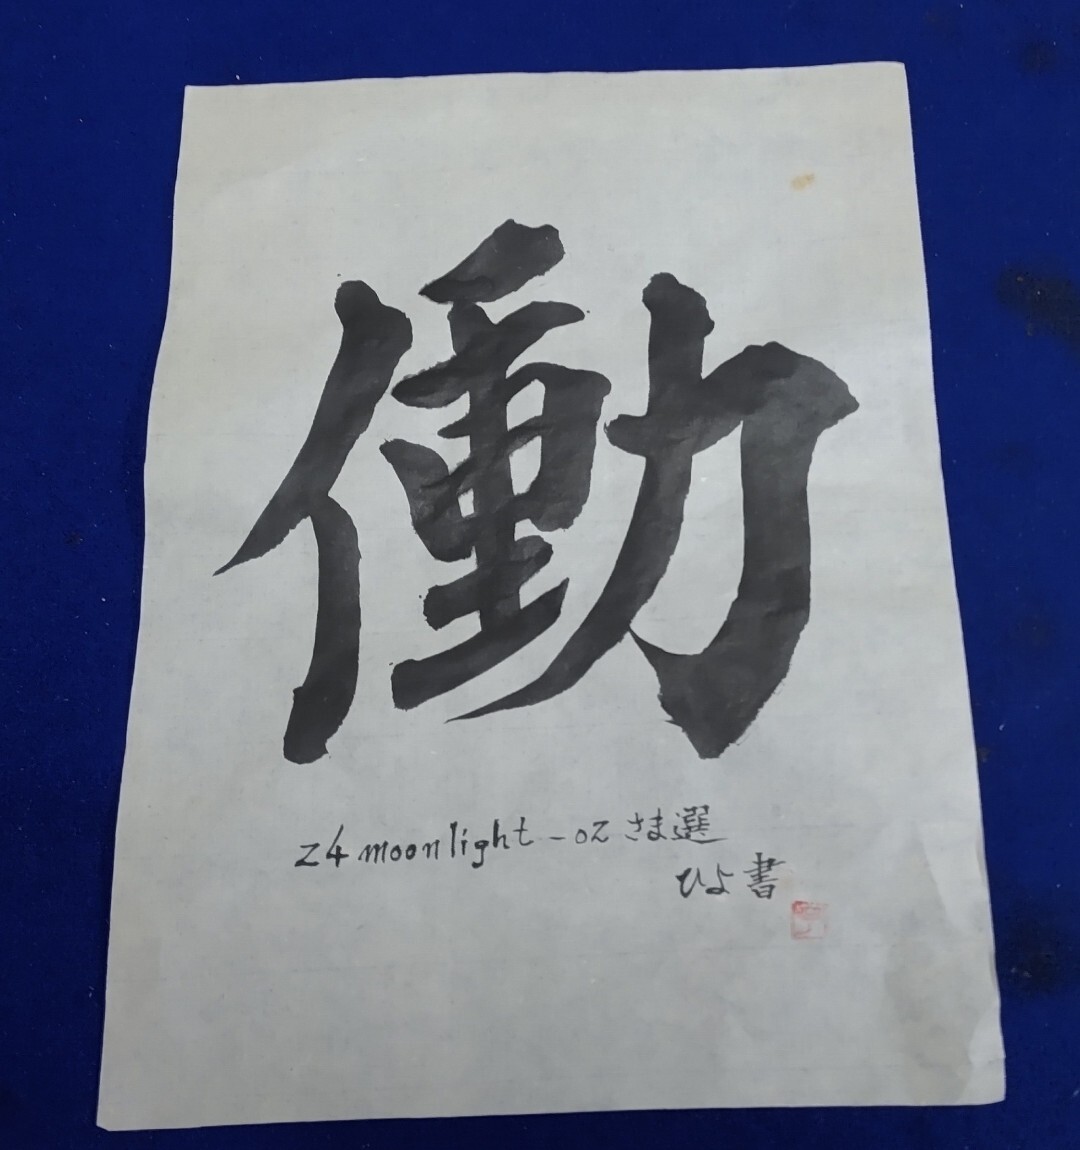 働
z4moonlight-oz さま選
ひよ書